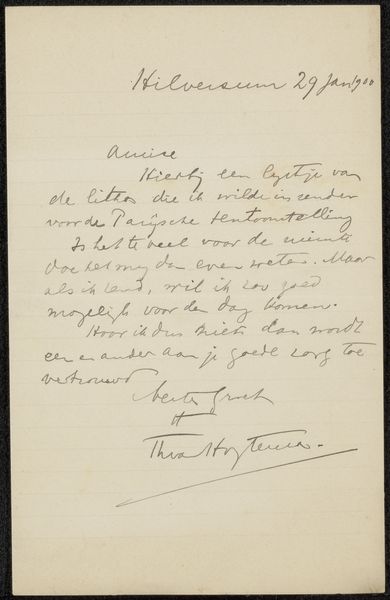 Hilversum 29 Jan 1900
Amice
Hierbij een lijstje van
de litho's die ik wilde inzenden
voor de Parijsche tentoonstelling
Is het te veel voor de ruimte
doe het mij dan even weten. Maar
als ik kan, wil ik zoo goed
mogelijk voor den dag komen.
Hoor ik dus niets dan wordt
een en ander aan je goede zorg toe
vertrouwd
groet
tt
Theo Hoytema.